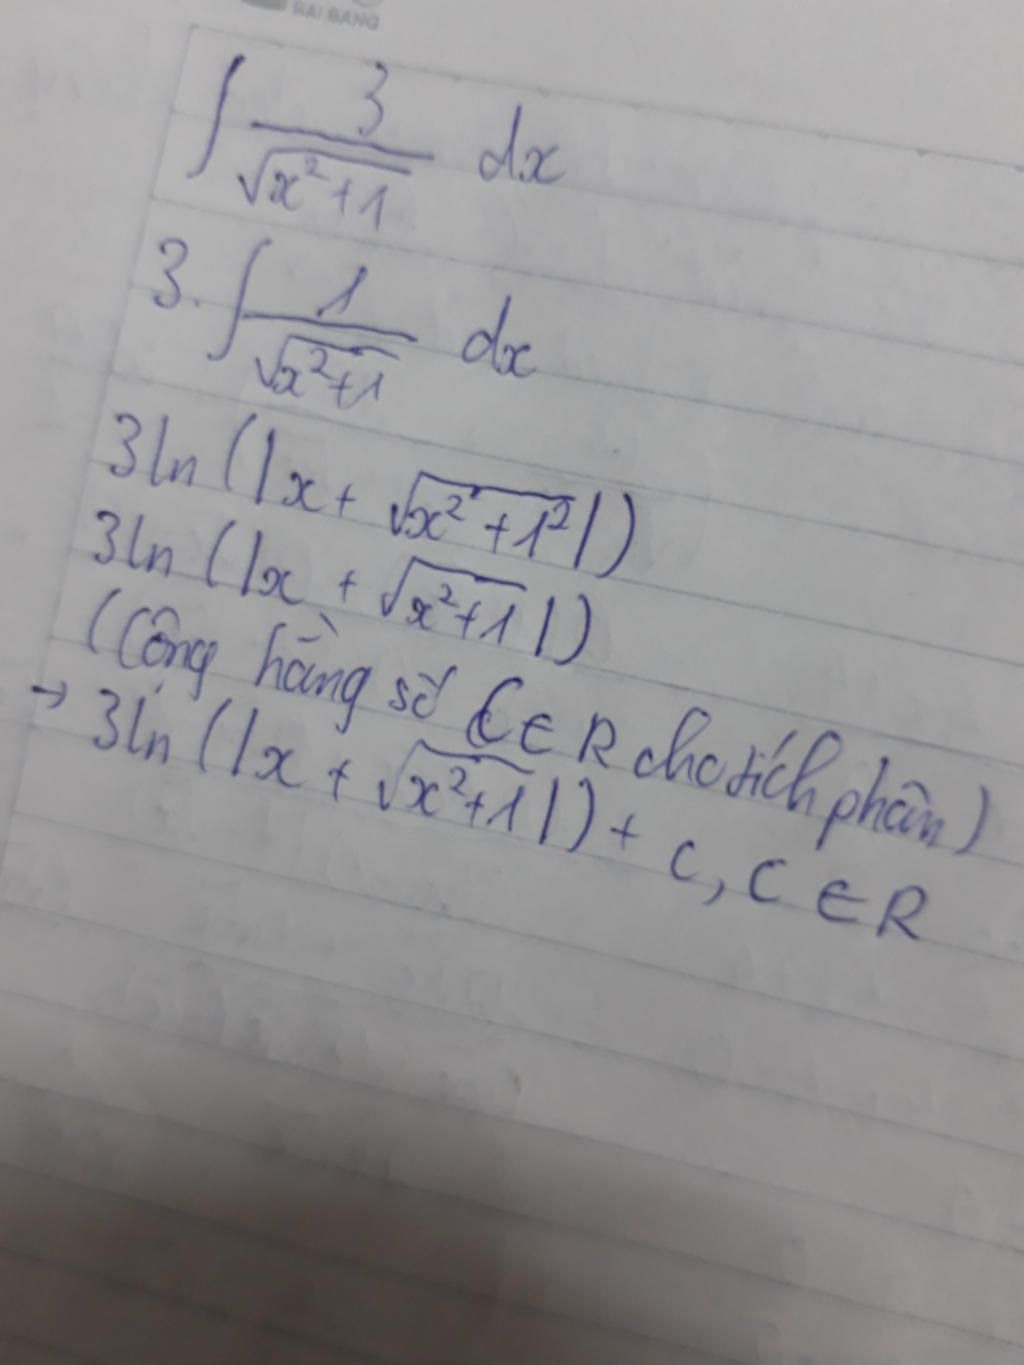 BAI BANG
∫ 3/√(x²+1) dx
3. ∫ 1/√(x²+1) dx
3ln (|x + √(x²+1²)|)
3ln (|x + √(x²+1)|)
(Cộng hằng số C ∈ R cho tích phân)
→ 3ln (|x + √(x²+1)|) + C, C ∈ R